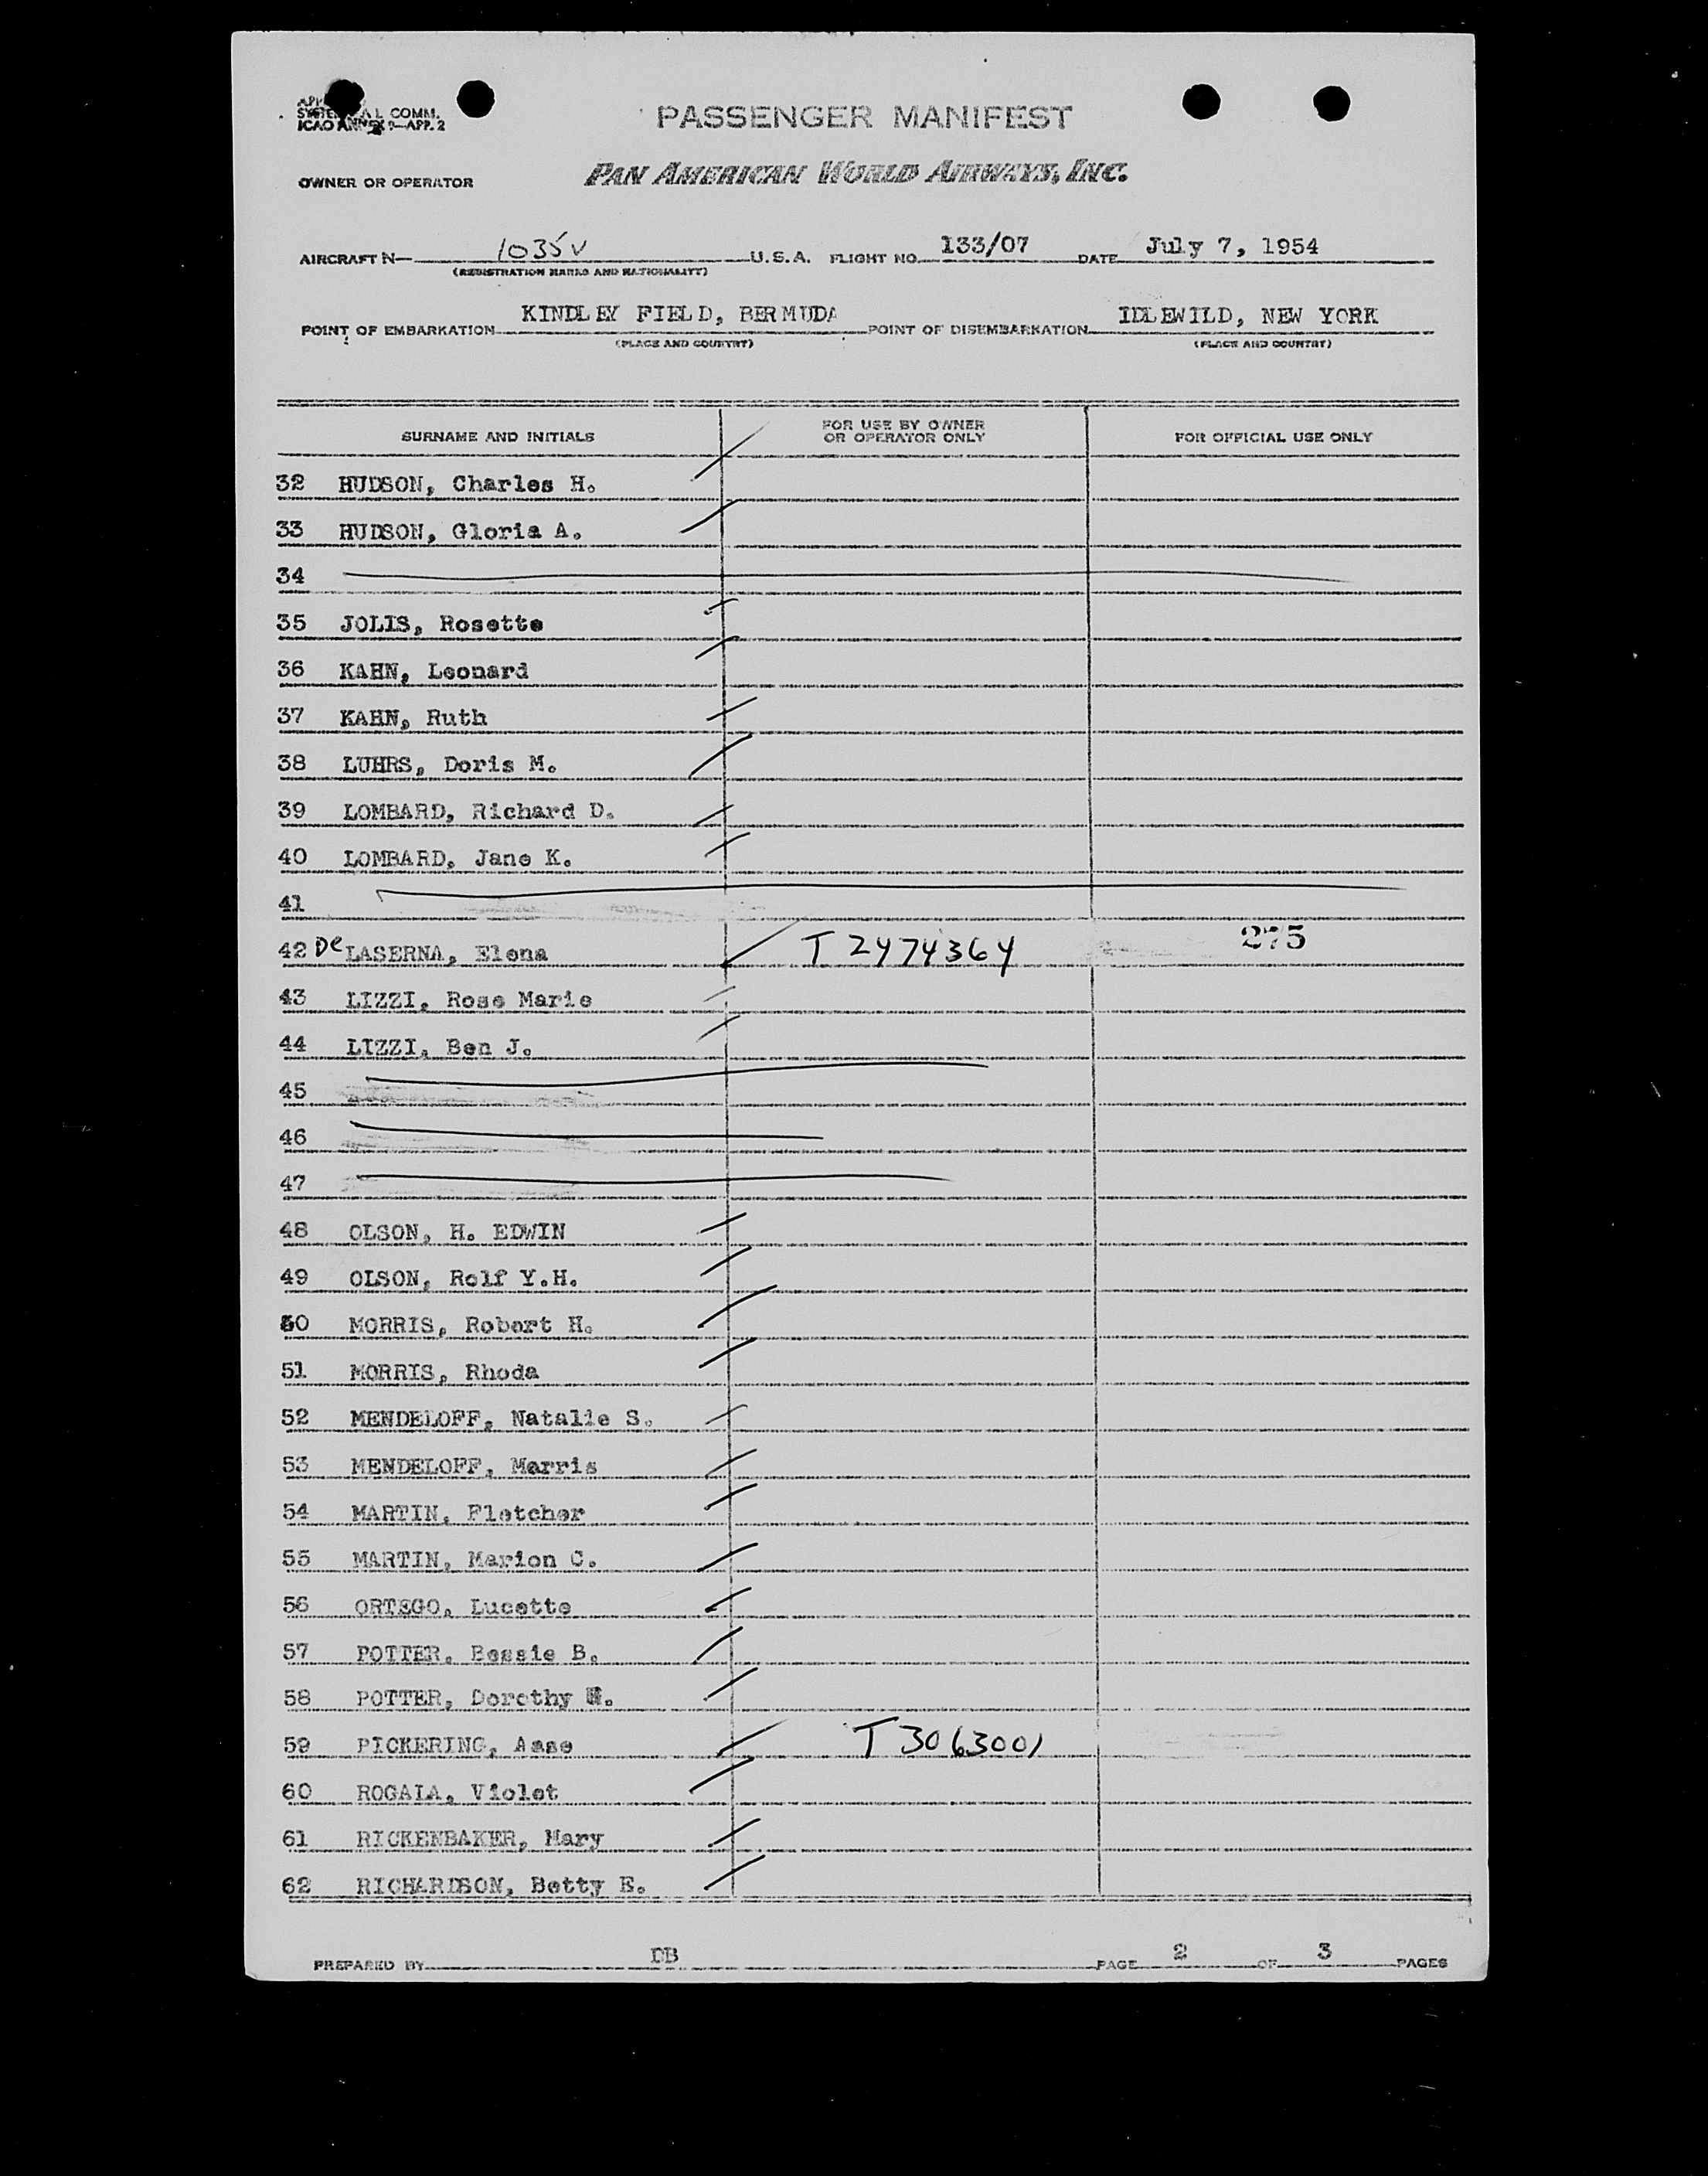 COMM.
ICAO ANNEX 9—APP. 2
PASSENGER MANIFEST
OWNER OR OPERATOR PAN AMERICAN WORLD AIRWAYS, INC.
AIRCRAFT N— 1035V U.S.A. FLIGHT NO. 133/07 DATE July 7, 1954
(REGISTRATION MARKS AND NATIONALITY)
POINT OF EMBARKATION KINDLEY FIELD, BERMUDA POINT OF DISEMBARKATION IDLEWILD, NEW YORK
(PLACE AND COUNTRY) (PLACE AND COUNTRY)
SURNAME AND INITIALS FOR USE BY OWNER OR OPERATOR ONLY FOR OFFICIAL USE ONLY
32 HUDSON, Charles H.
33 HUDSON, Gloria A.
34
35 JOLIS, Rosette
36 KAHN, Leonard
37 KAHN, Ruth
38 LUHRS, Doris M.
39 LOMBARD, Richard D.
40 LOMBARD, Jane K.
41
42 De LASERNA, Elena T 2474364 275
43 LIZZI, Rose Marie
44 LIZZI, Ben J.
45
46
47
48 OLSON, H. EDWIN
49 OLSON, Rolf Y.H.
50 MORRIS, Robert H.
51 MORRIS, Rhoda
52 MENDELOFF, Natalie S.
53 MENDELOFF, Morris
54 MARTIN, Fletcher
55 MARTIN, Marion C.
56 ORTEGO, Lucette
57 POTTER, Bessie B.
58 POTTER, Dorothy
59 PICKERING, Aase T 3063001
60 ROGALA, Violet
61 RICKENBAKER, Mary
62 RICHARDSON, Betty E.
PREPARED BY DB PAGE 2 OF 3 PAGES